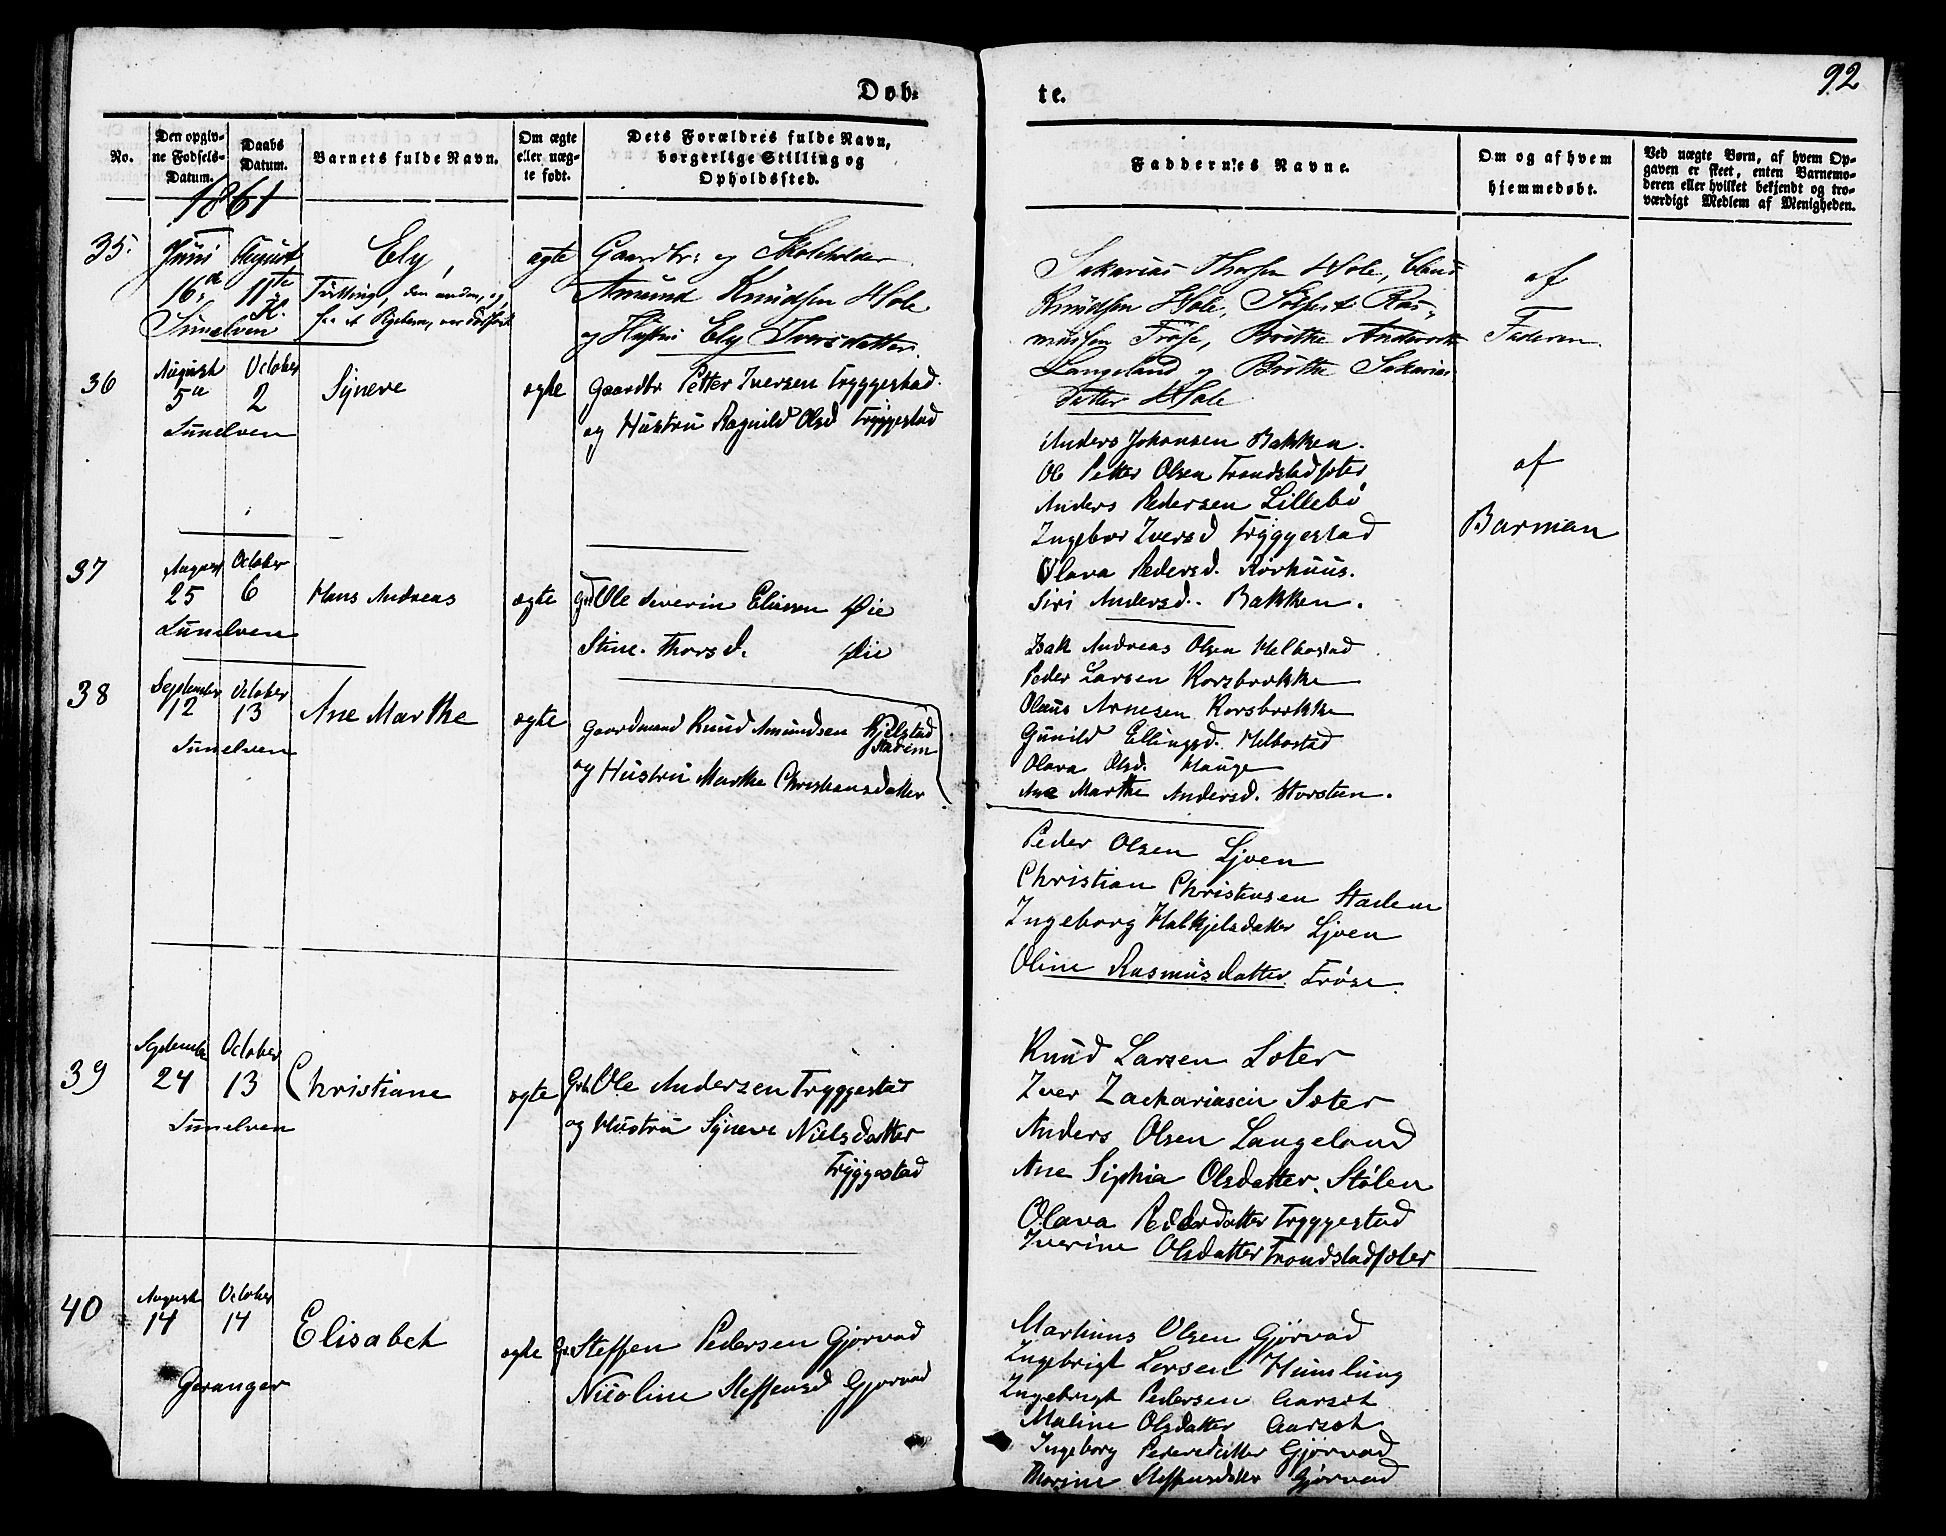 92
Døb-
te.
No.
Den opgiv-
ne Fødsels-
Datum.
Daabs
Datum.
Barnets fulde Navn.
Om ægte
eller uæg-
te født.
Dets Forældres fulde Navn,
borgerlige Stilling og
Opholdssted.
Faddernes Navne.
Om og af hvem
hjemmedøbt.
Ved uægte Børn, af hvem Op-
gaven er skeet, enten Barnemo-
deren eller hvilket bekjendt og tro-
værdigt Medlem af Menigheden.
1861
35.
Juni
16d
Sunelven
August
11te
K.
Ely,
Tvilling, den anden, og
ægte
Gaardbr: og Skoleholder
Amund Knudsen Hole
og Hustru Ely Iversdatter.
Sakarias Thorsen Hole,
Knudsen Hole, Ras-
mussen Frøse, Brøthe Andersdt
Langeland og Brøthe Sakarias
datter Hole
af
Faderen
36
August
5te
Sunelven
October
2
Syneve
ægte
Gaardbr Petter Iversen Tryggestad.
og Hustru Ragnild Olsd Tryggestad
Anders Johansen Bakken.
Ole Petter Olsen Trondstadsæter
Anders Pedersen Lillebø
Ingebor Iversd Tryggestad
Olava Pedersd. Rørhuus.
Siri Andersd. Bakken.
af
Barman
37
August
25
Sunelven
October
6
Hans Andreas
ægte
Gd Ole Severin Eliasen Øie
Stine Thorsd. Øie
Isak Andreas Olsen Helbostad
Peder Larsen Korsbrække
Olaus Arnesen Korsbrække
Gunild Ellingsd. Helbostad
Olava Olsd. Hauge
Ane Marthe Andersd. Horsteen.
38
September
12
Sunelven
October
13
Ane Marthe
ægte
Gaardmand Knud Amundsen Kjelstad
Stadem
og Hustru Marthe Christiansdatter
Peder Olsen Ljøen
Christian Christiansen Stadem
Ingeborg Halkjelsdatter Ljøen
Oline Rasmusdatter Frøse.
39
September
24
Sunelven
October
13
Christiane
ægte
Grb. Ole Andersen Tryggestad
og Hustru Syneve Nielsdatter
Tryggestad
Knud Larsen Sæter
Iver Zachariasen Sæter
Anders Olsen Langeland
Ane Siphia Olsdatter. Stølen
Olava Pedersdatter Tryggestad
Iverine Olsdatter Trondstadsæter
40
August
14
Geranger
October
14
Elisabet
ægte
Gr. Steffen Pedersen Gjørvad
Nicoline Steffensd Gjørvad
Martinus Olsen Gjørvad
Ingebrigt Larsen Humlung
Ingebrigt Pedersen Aarset
Maline Olsdatter Aarset
Ingeborg Pedersdatter Gjørvad
Thorine Steffensdatter Gjørvad